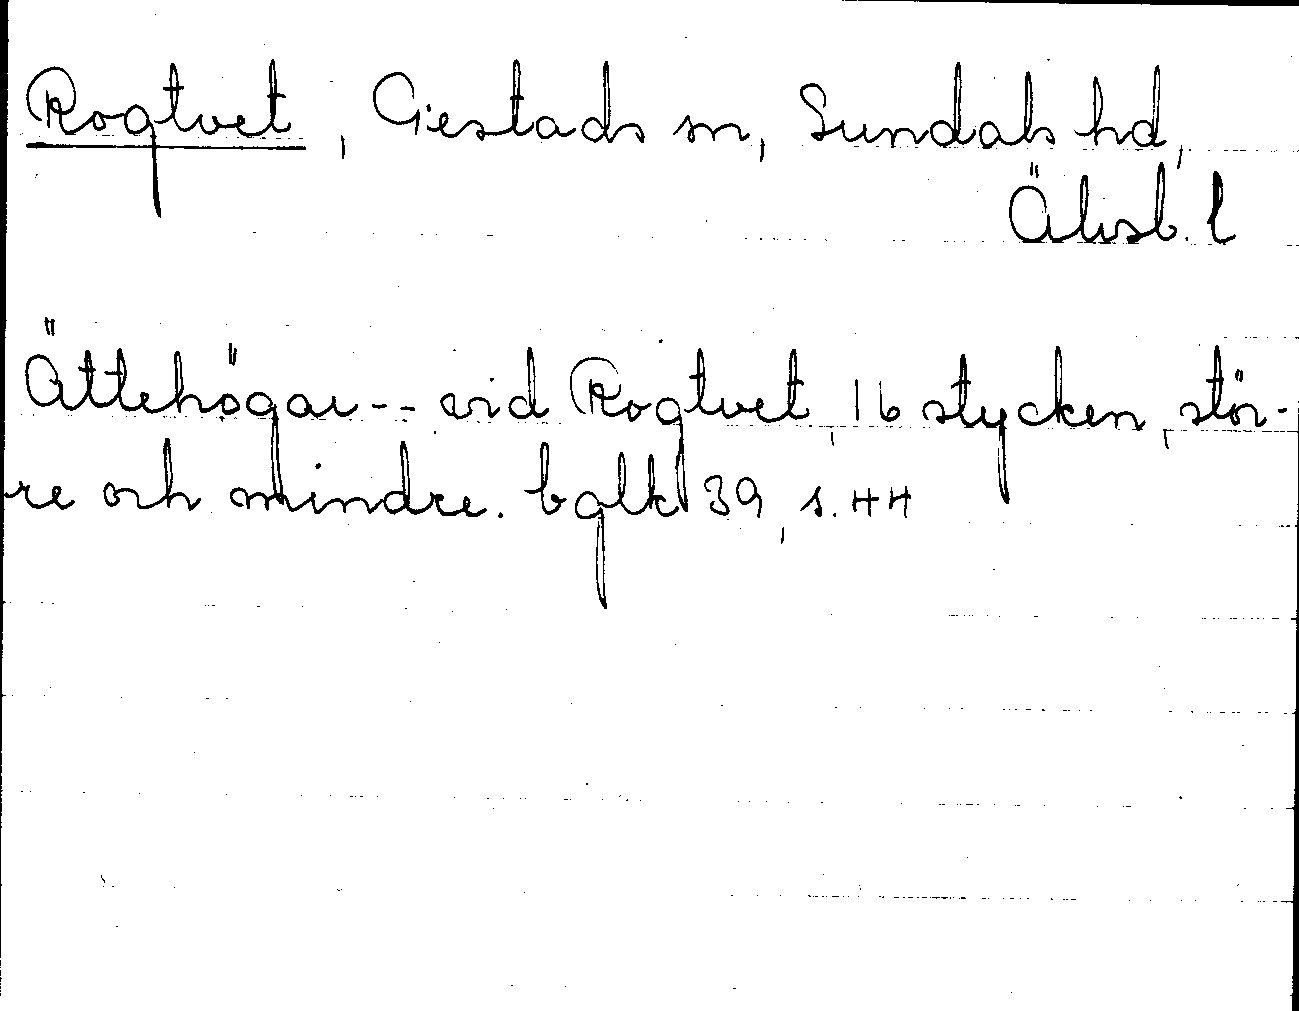 Rogtvet, Gestads sn, Sundals hd,
Älvsb. l
Ättehögar -- vid Rogtvet, 16 stycken, stör-
re och mindre. bqlk 39, s. 44